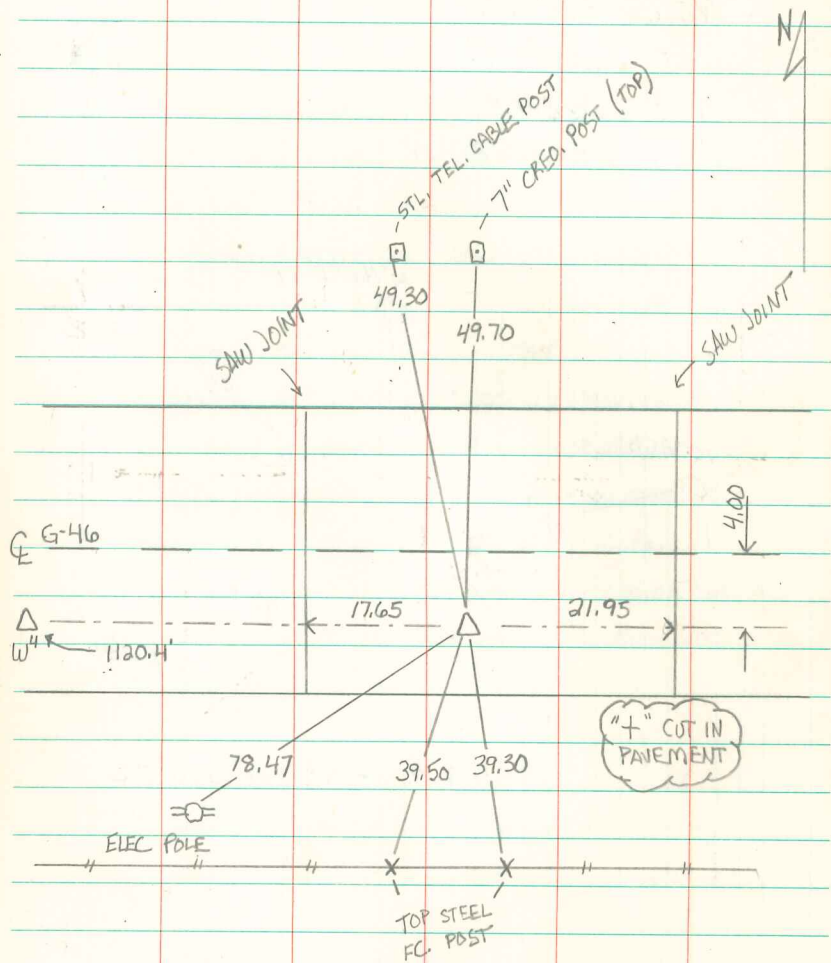 N
STL. TEL. CABLE POST
7" CREO. POST (TOP)
49.30
49.70
SAW JOINT
SAW JOINT
4.00
℄ G-46
17.65
21.95
W"
1120.4'
"+" CUT IN
PAVEMENT
78.47
39.50
39.30
ELEC POLE
TOP STEEL
FC. POST